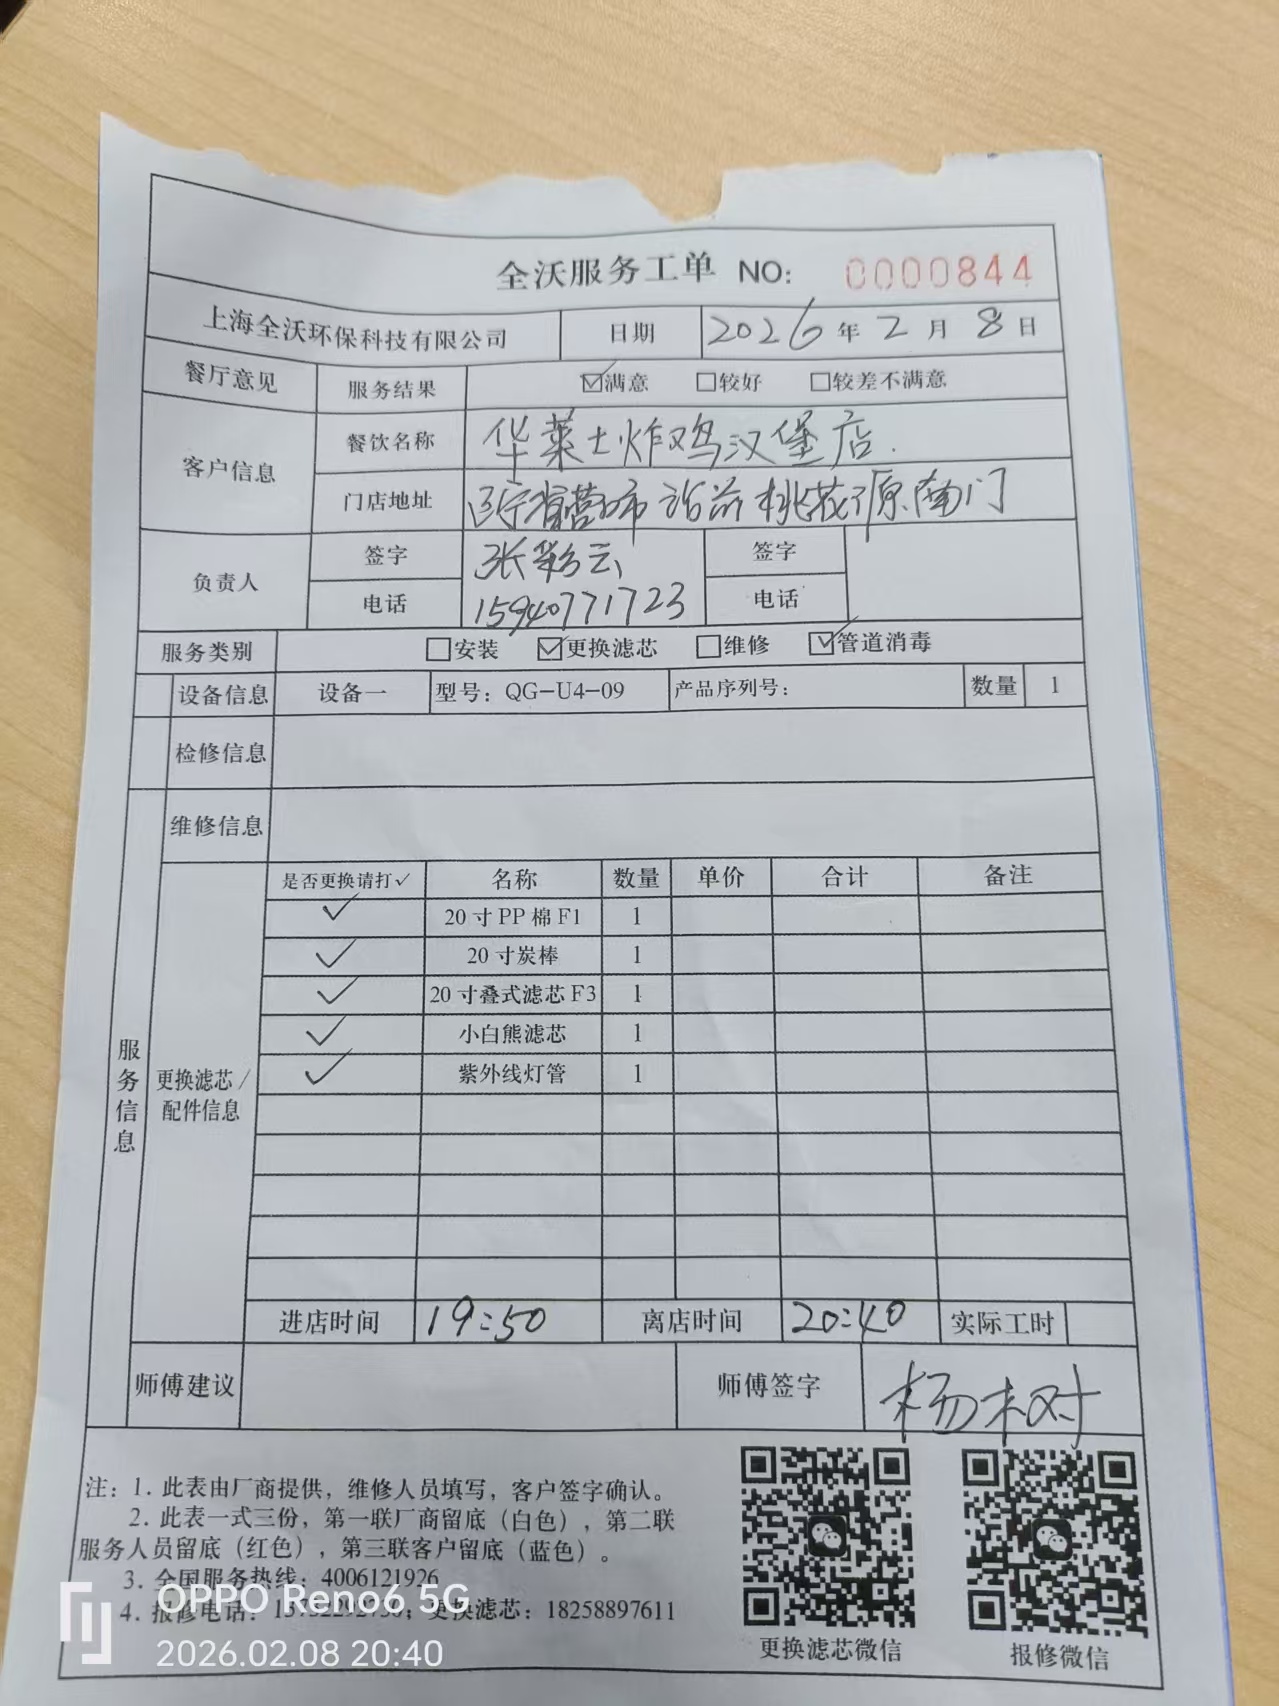 全沃服务工单 NO: 0000844
上海全沃环保科技有限公司 日期 2026年2月8日
餐厅意见 服务结果 ☑满意 □较好 □较差不满意
客户信息 餐饮名称 华莱士炸鸡汉堡店.
门店地址 桃花源南门
负责人 签字 张彩云 签字
电话 15940771723 电话
服务类别 □安装 ☑更换滤芯 □维修 ☑管道消毒
设备信息 设备一 型号：QG-U4-09 产品序列号： 数量 1
检修信息
维修信息
服务信息
更换滤芯/
配件信息
是否更换请打✓ 名称 数量 单价 合计 备注
✓ 20寸PP棉F1 1
✓ 20寸炭棒 1
✓ 20寸叠式滤芯F3 1
✓ 小白熊滤芯 1
✓ 紫外线灯管 1
进店时间 19:50 离店时间 20:40 实际工时
师傅建议 师傅签字 杨树
注：1. 此表由厂商提供，维修人员填写，客户签字确认。
2. 此表一式三份，第一联厂商留底（白色），第二联
服务人员留底（红色），第三联客户留底（蓝色）。
3. 全国服务热线：4006121926
4. 报修电话： 更换滤芯：18258897611
更换滤芯微信 报修微信
OPPO Reno6 5G
2026.02.08 20:40